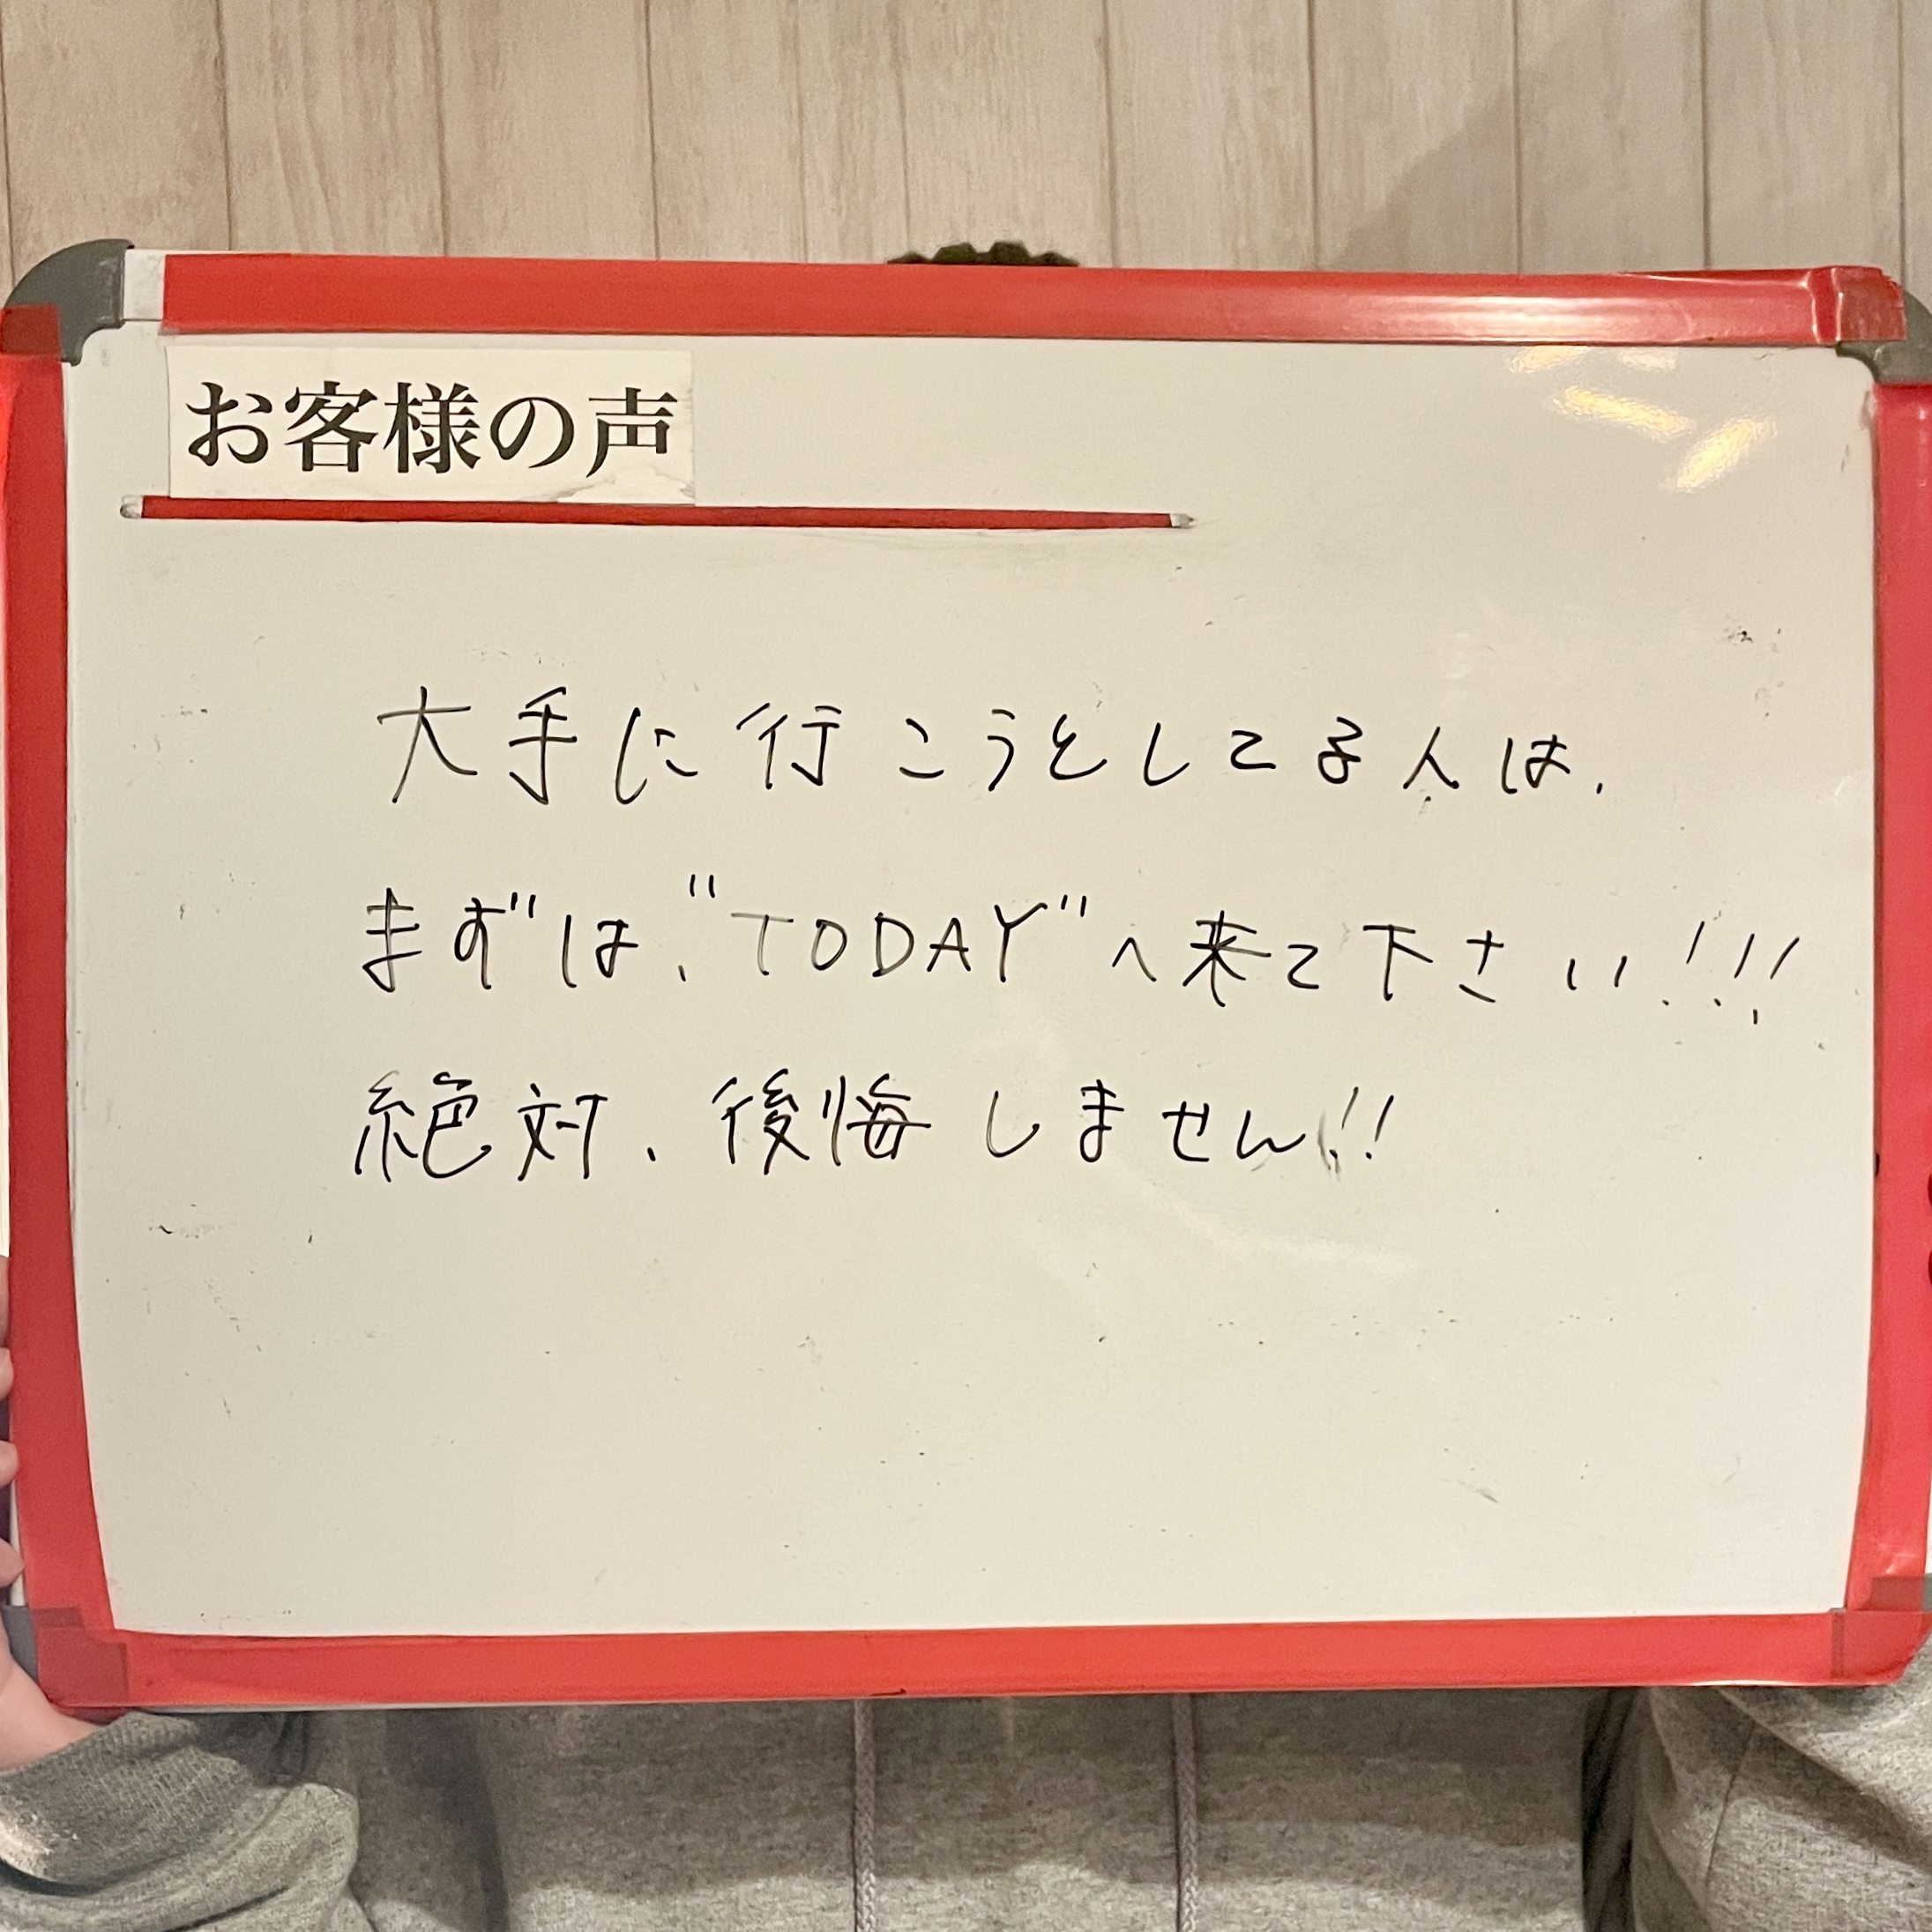 お客様の声
大手に行こうとしてる人は、
まずは、"TODAY"へ来て下さい!!!
絶対、後悔しません!!